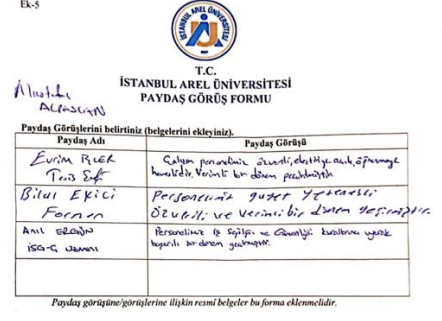 Ek-5
İSTANBUL AREL ÜNİVERSİTESİ
T.C.
İSTANBUL AREL ÜNİVERSİTESİ
PAYDAŞ GÖRÜŞ FORMU
Mustafa
ALPASLAN
Paydaş Görüşlerini belirtiniz (belgelerini ekleyiniz).
Paydaş Adı
Paydaş Görüşü
Evrim İŞLER
Tesis Şefi
Çalışan personelimiz özverili, eleştiriye açık, öğrenmeye
heveslidir. Verimli bir dönem geçirilmiştir.
Bilal Ekici
Formen
Personelimiz gayet yetenekli
Özverili ve verimli bir dönem geçirmiştir.
Anıl ERGÜN
İSG-C Uzmanı
Personelimiz İş Sağlığı ve Güvenliği kurallarına uyarak
başarılı bir dönem geçirmiştir.
Paydaş görüşüne/görüşlerine ilişkin resmî belgeler bu forma eklenmelidir.